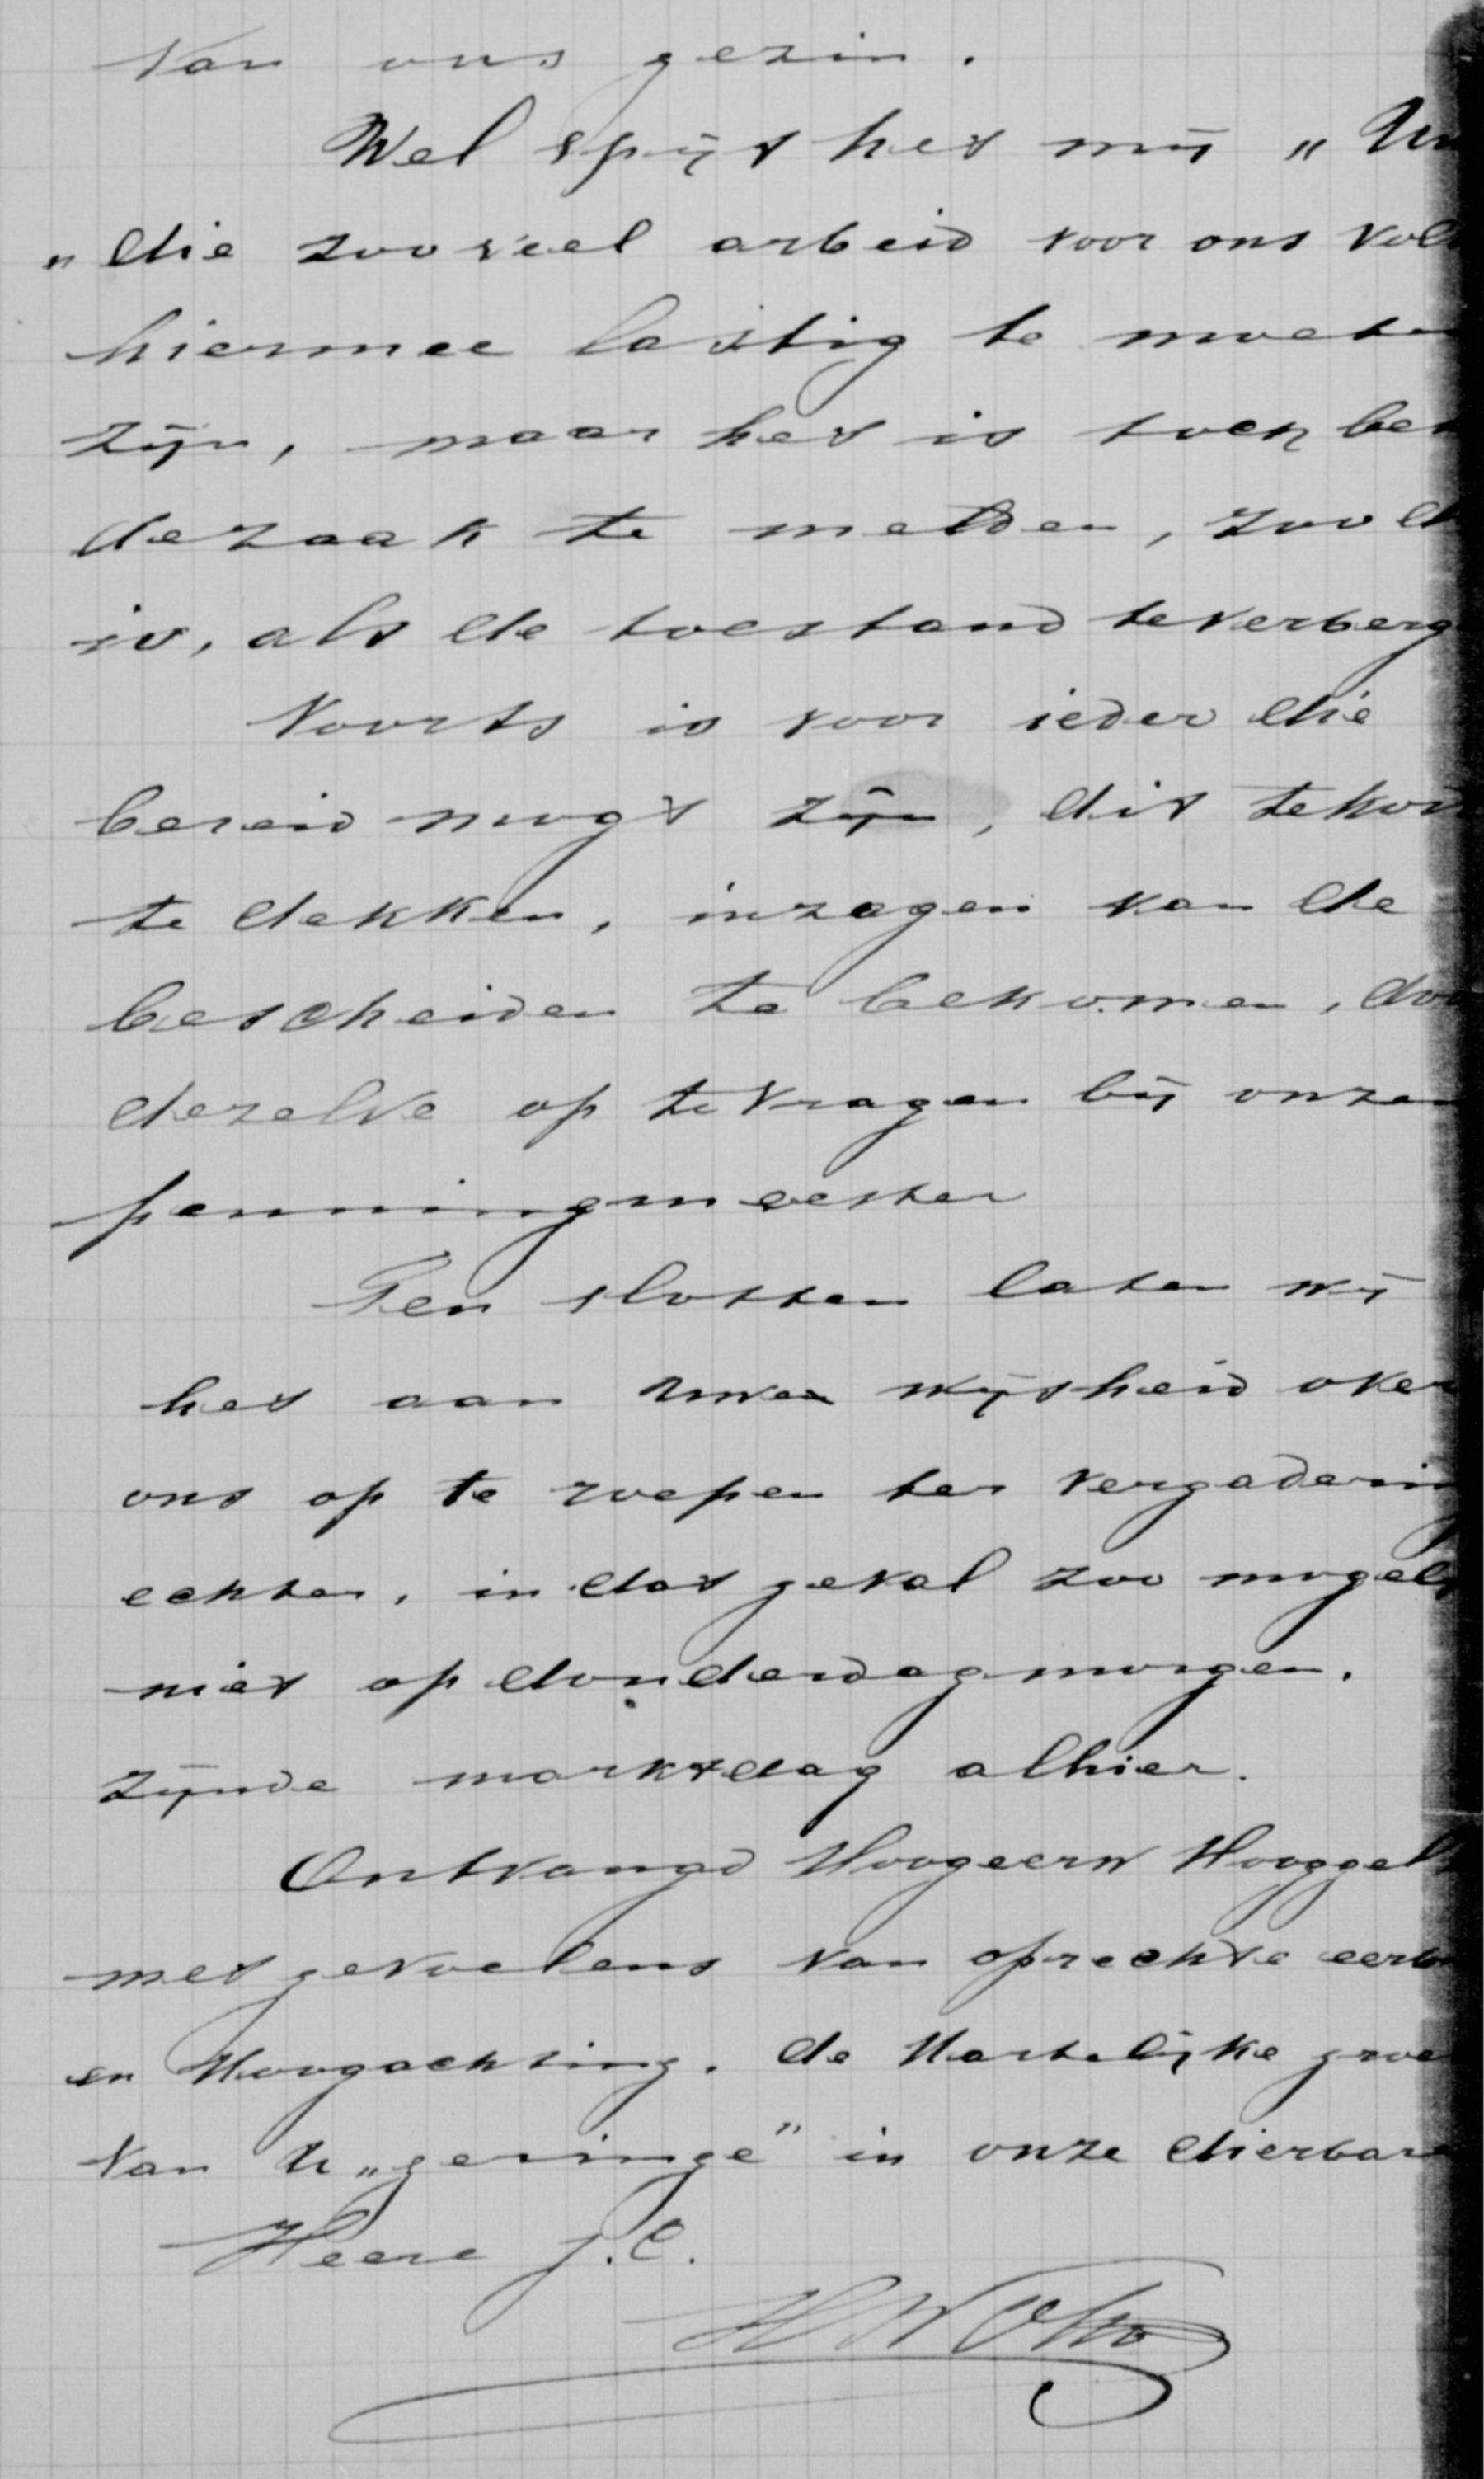 van ons gezin.
Wel spijt het mij „
„ die zooveel arbeid voor ons
hiermee lastig te
zijn, maar het is toch
dezaak te melden,
is, als de toestand
Voorts is voor ieder die
bereid mogt zijn, dit
te dekken, inzagen van de
bescheiden te bekomen,
dezelve op te vragen bij
penningmeester
Ten slotten laten wij
het aan Uwe wijsheid
ons op te roepen ter
echter, in dat geval zoo
niet op donderdagmorgen.
zijnde marktdag alhier.
Ontvangd Hoogeerw
met gevoelens van oprechte
en Hoogachting. de Hartelijke
van U „geringe" in onze
Heere J.C.